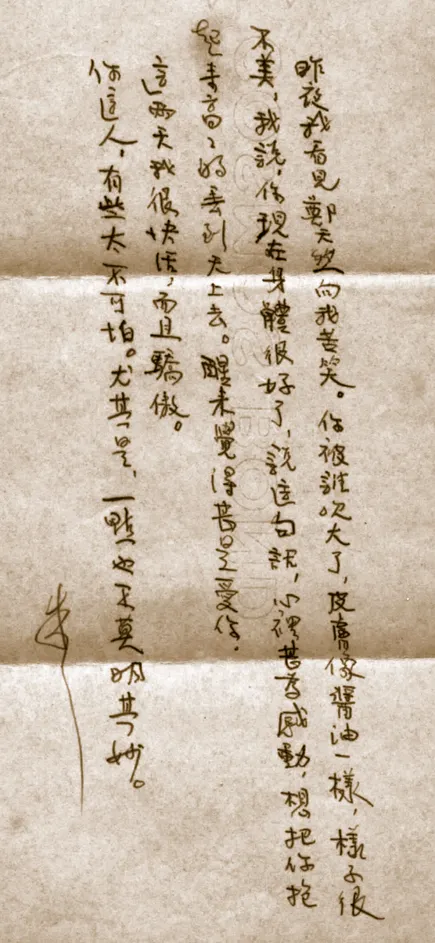 昨夜我看見鄭天然向我苦笑。你被誰吹大了,皮膚像醬油一樣,樣子很
不美,我說,你現在身體很好了,說這句話,心裡甚為感動,想把你抱
起來高高的丟到天上去。醒來覺得甚是愛你.
這兩天我很快活,而且驕傲。
你這人,有些太不可怕。尤其是,一點也不莫明其妙。
朱
BOND